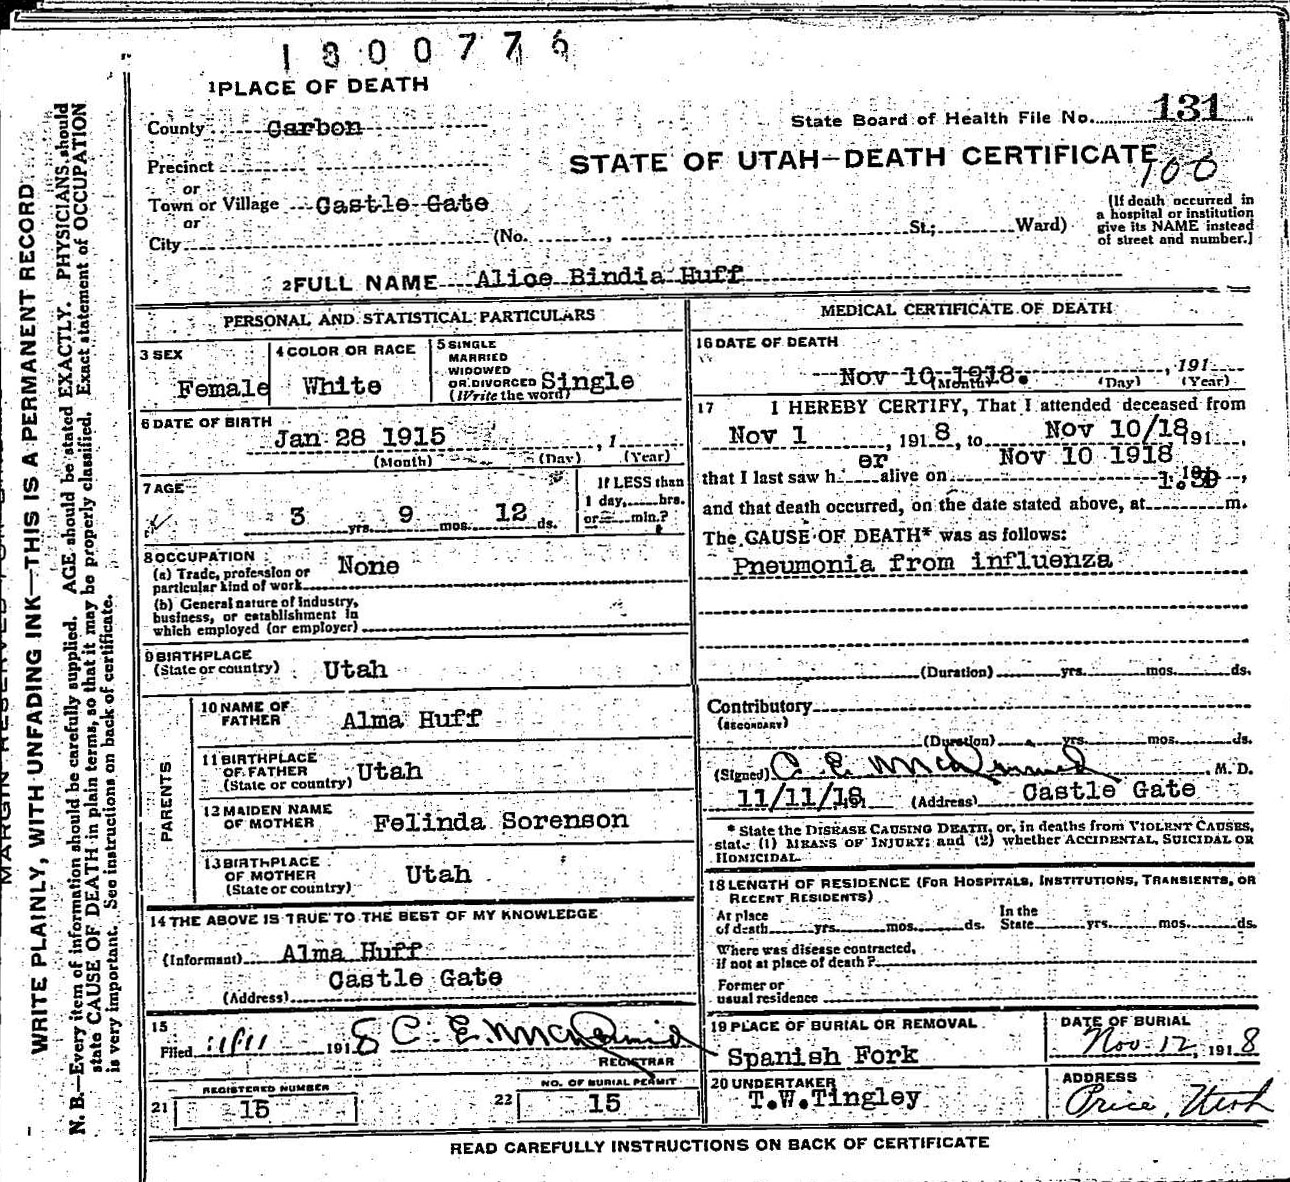 1800776
1 PLACE OF DEATH
County Carbon
State Board of Health File No. 131
Precinct
STATE OF UTAH—DEATH CERTIFICATE
100
or
Town or Village Castle Gate
or
City (No. , St.; Ward)
(If death occurred in
a hospital or institution
give its NAME instead
of street and number.)
2 FULL NAME Alice Bindia Huff
PERSONAL AND STATISTICAL PARTICULARS
3 SEX
Female
4 COLOR OR RACE
White
5 SINGLE
MARRIED
WIDOWED
OR DIVORCED Single
(Write the word)
6 DATE OF BIRTH
Jan 28 1915 , 1
(Month) (Day) (Year)
7 AGE
3 yrs. 9 mos. 12 ds.
If LESS than
1 day, hrs.
or min.?
8 OCCUPATION
(a) Trade, profession or
particular kind of work None
(b) General nature of industry,
business, or establishment in
which employed (or employer)
9 BIRTHPLACE
(State or country) Utah
PARENTS
10 NAME OF
FATHER Alma Huff
11 BIRTHPLACE
OF FATHER
(State or country) Utah
12 MAIDEN NAME
OF MOTHER Felinda Sorenson
13 BIRTHPLACE
OF MOTHER
(State or country) Utah
14 THE ABOVE IS TRUE TO THE BEST OF MY KNOWLEDGE
(Informant) Alma Huff
Castle Gate
(Address)
15
Filed 11/11 1918 C. E. McDermid
REGISTRAR
REGISTERED NUMBER
21 15
NO. OF BURIAL PERMIT
22 15
MEDICAL CERTIFICATE OF DEATH
16 DATE OF DEATH
Nov 10 1918. , 191
(Month) (Day) (Year)
17 I HEREBY CERTIFY, That I attended deceased from
Nov 1 , 1918, to Nov 10/18 191 ,
that I last saw her alive on Nov 10 1918 191 ,
and that death occurred, on the date stated above, at 1.30 m.
The CAUSE OF DEATH* was as follows:
Pneumonia from influenza
(Duration) yrs. mos. ds.
Contributory
(SECONDARY)
(Duration) yrs. mos. ds.
(Signed) C. E. McDermid M. D.
11/11/18 (Address) Castle Gate
* State the DISEASE CAUSING DEATH, or, in deaths from VIOLENT CAUSES,
state (1) MEANS OF INJURY; and (2) whether ACCIDENTAL, SUICIDAL OR
HOMICIDAL.
18 LENGTH OF RESIDENCE (FOR HOSPITALS, INSTITUTIONS, TRANSIENTS, OR
RECENT RESIDENTS)
At place
of death yrs. mos. ds.
In the
State yrs. mos. ds.
Where was disease contracted,
if not at place of death?
Former or
usual residence
19 PLACE OF BURIAL OR REMOVAL
Spanish Fork
DATE OF BURIAL
Nov. 12, 1918
20 UNDERTAKER
T.W.Tingley
ADDRESS
Price, Utah
READ CAREFULLY INSTRUCTIONS ON BACK OF CERTIFICATE
WRITE PLAINLY, WITH UNFADING INK—THIS IS A PERMANENT RECORD
N. B.—Every item of information should be carefully supplied. AGE should be stated EXACTLY. PHYSICIANS should
state CAUSE OF DEATH in plain terms, so that it may be properly classified. Exact statement of OCCUPATION
is very important. See instructions on back of certificate.